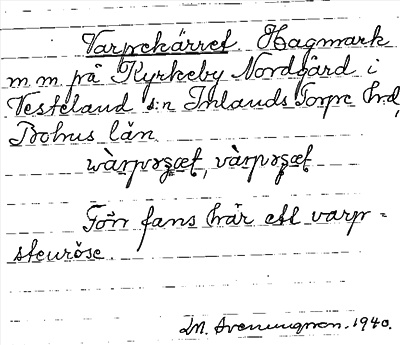 Varpekärret. Hagmark
m m på Kyrkeby Nordgård i
Vesteland s:n Inlands Torpe hrd,
Bohus län.
Förr fans här ett varp-
stenröse.
M. Svenungson. 1940.